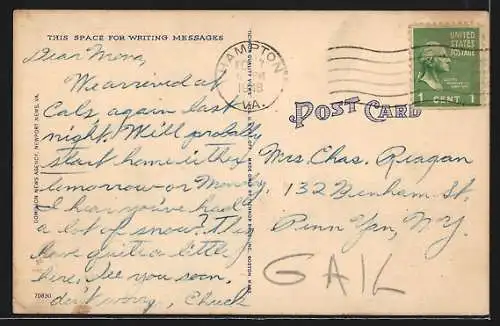 THIS SPACE FOR WRITING MESSAGES
Dear Mom,
We arrived at
Cals again last
night. Will probably
start home either
tomorrow or Monday.
I hear you've had
a lot of snow? They
have quite a little
here. See you soon,
don't worry, Chuck
70830
DOMINION NEWS AGENCY, NEWPORT NEWS, VA.
HAMPTON
VA.
UNITED
STATES
POSTAGE
1 CENT 1
POST CARD
Mrs. Chas. Reagan
132 Benham St.
Penn Yan, N.Y.
GAIL